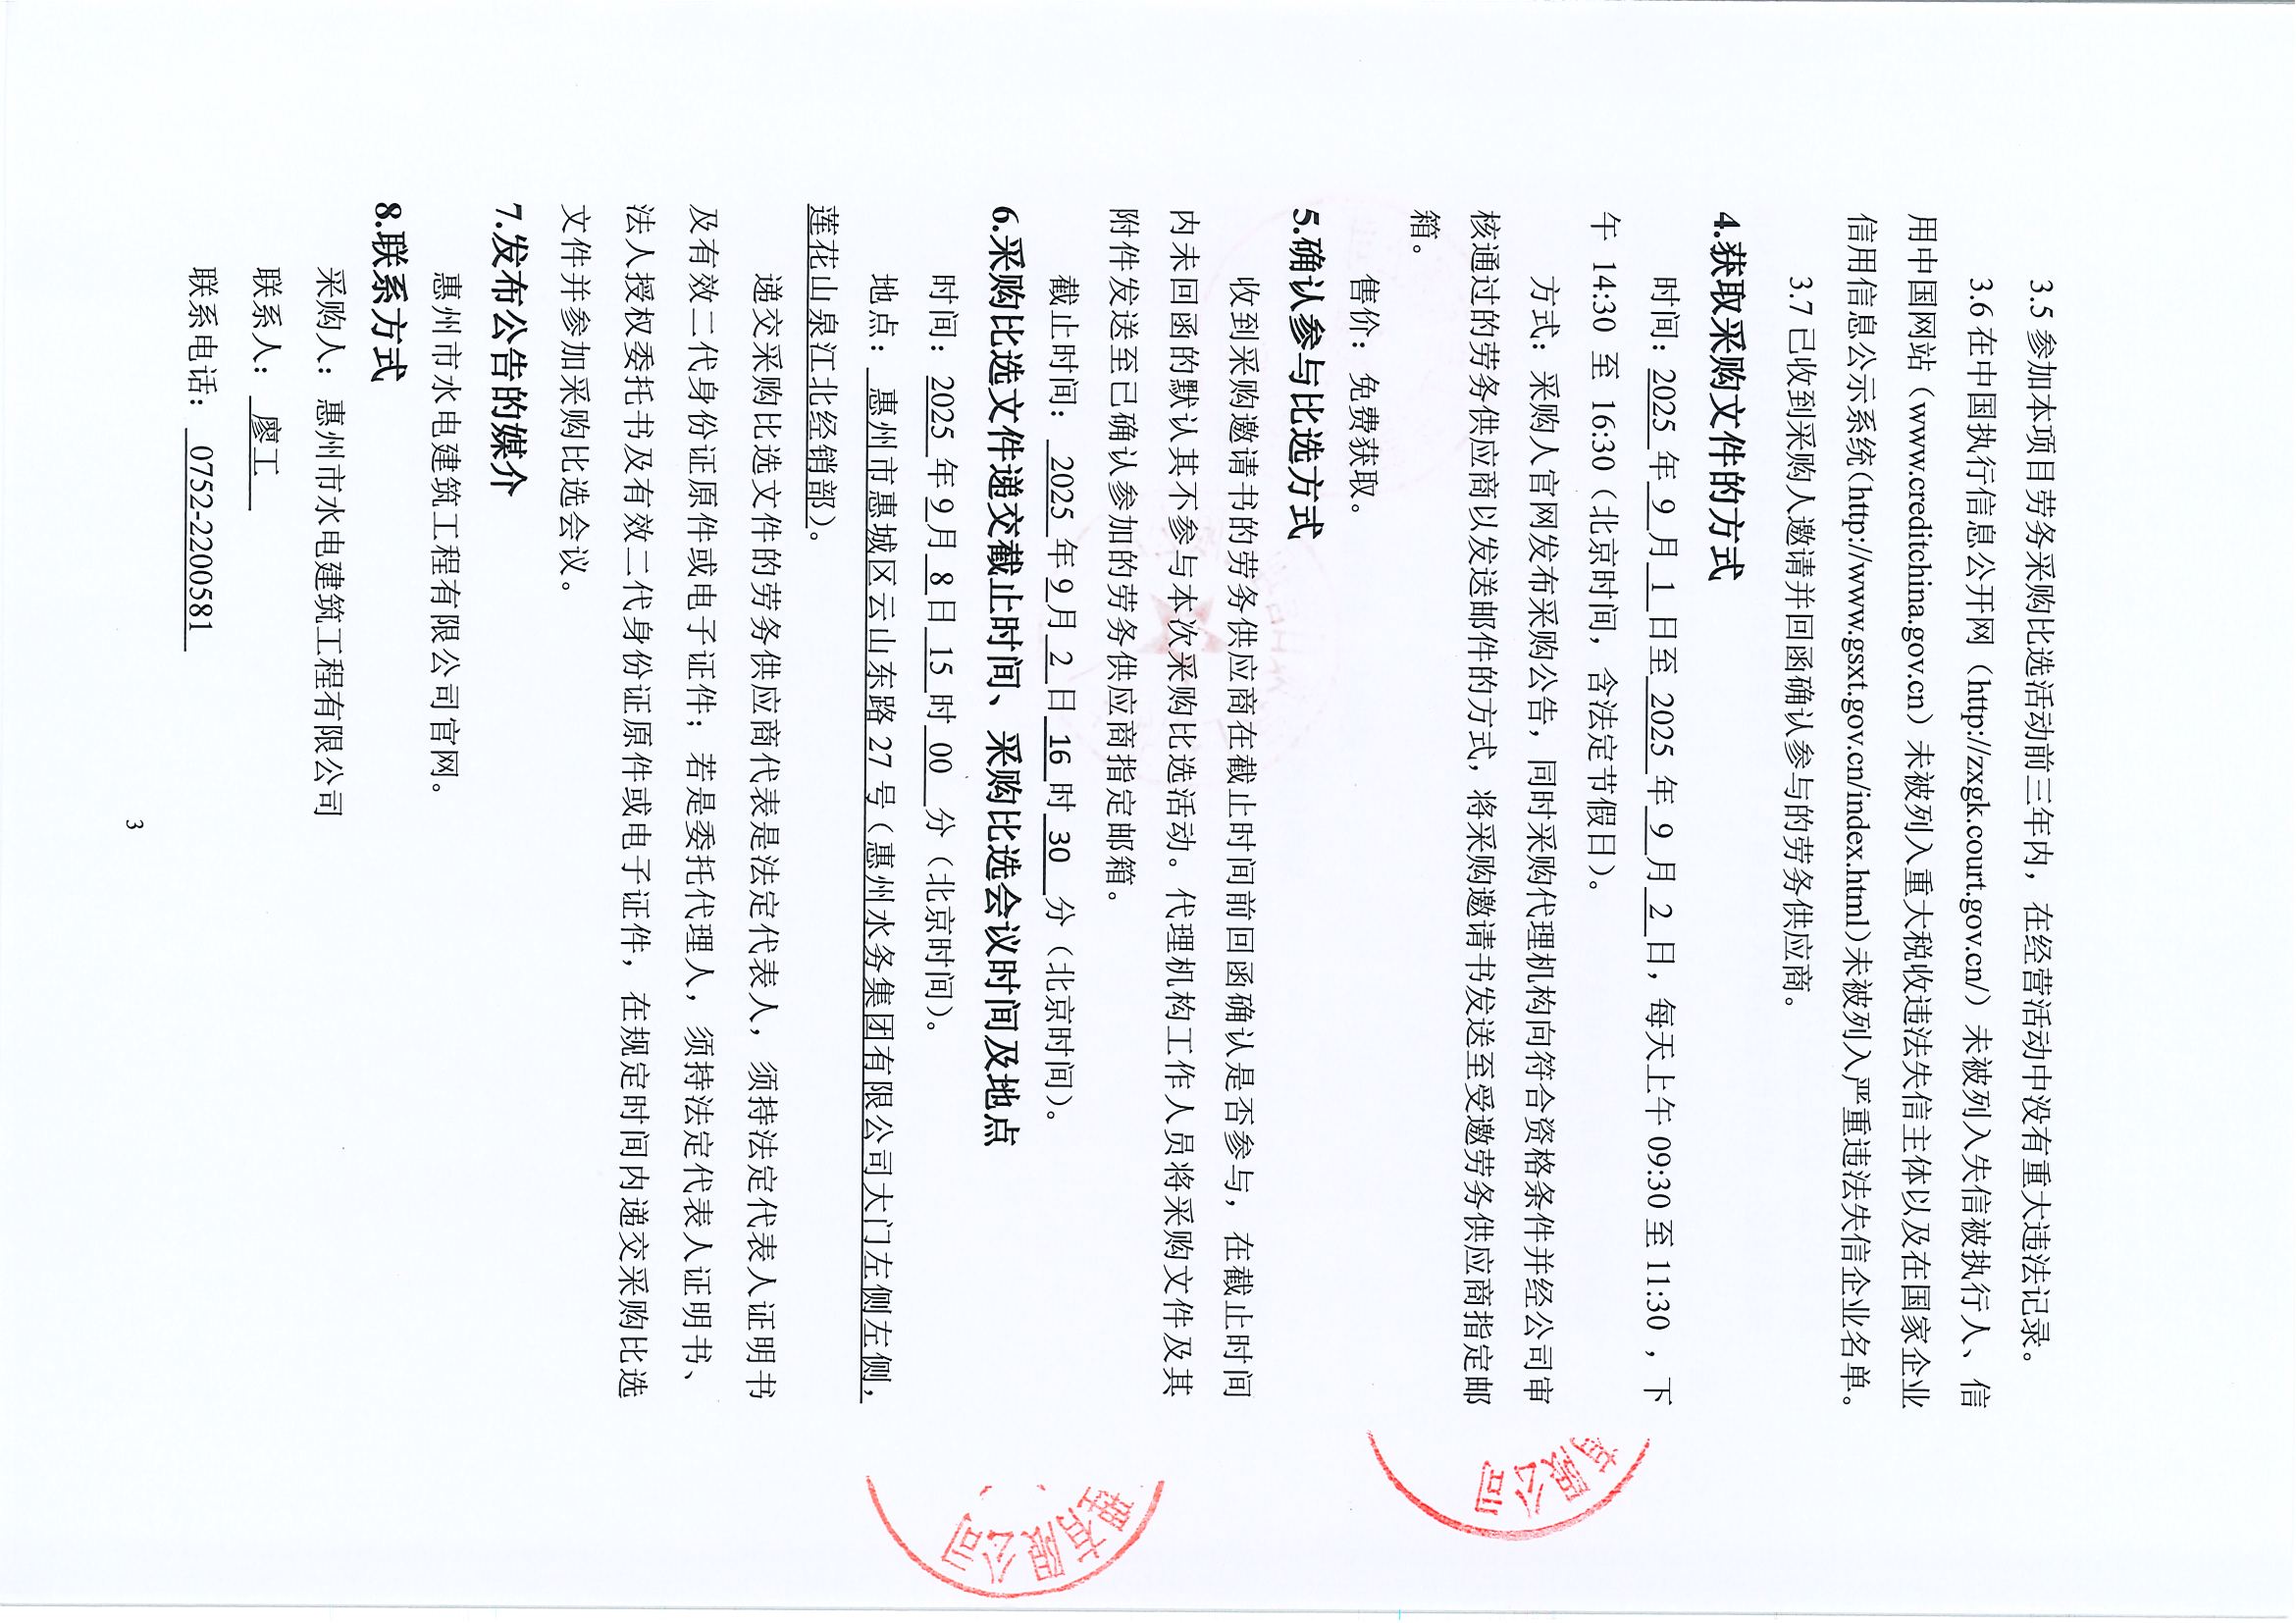 3.5 参加本项目劳务采购比选活动前三年内，在经营活动中没有重大违法记录。
3.6 在中国执行信息公开网（http://zxgk.court.gov.cn/）未被列入失信被执行人、信
用中国网站（www.creditchina.gov.cn）未被列入重大税收违法失信主体以及在国家企业
信用信息公示系统(http://www.gsxt.gov.cn/index.html)未被列入严重违法失信企业名单。
3.7 已收到采购人邀请并回函确认参与的劳务供应商。
4.获取采购文件的方式
时间：2025 年 9 月 1 日至 2025 年 9 月 2 日，每天上午 09:30 至 11:30 ，下
午 14:30 至 16:30（北京时间，含法定节假日）。
方式：采购人官网发布采购公告，同时采购代理机构向符合资格条件并经公司审
核通过的劳务供应商以发送邮件的方式，将采购邀请书发送至受邀劳务供应商指定邮
箱。
售价：免费获取。
5.确认参与比选方式
收到采购邀请书的劳务供应商在截止时间前回函确认是否参与，在截止时间
内未回函的默认其不参与本次采购比选活动。代理机构工作人员将采购文件及其
附件发送至已确认参加的劳务供应商指定邮箱。
截止时间： 2025 年 9 月 2 日 16 时 30 分（北京时间）。
6.采购比选文件递交截止时间、采购比选会议时间及地点
时间：2025 年 9 月 8 日 15 时 00 分（北京时间）。
地点： 惠州市惠城区云山东路 27 号（惠州水务集团有限公司大门左侧左侧，
莲花山泉江北经销部）。
递交采购比选文件的劳务供应商代表是法定代表人，须持法定代表人证明书
及有效二代身份证原件或电子证件；若是委托代理人，须持法定代表人证明书、
法人授权委托书及有效二代身份证原件或电子证件，在规定时间内递交采购比选
文件并参加采购比选会议。
7.发布公告的媒介
惠州市水电建筑工程有限公司官网。
8.联系方式
采购人：惠州市水电建筑工程有限公司
联系人： 廖工
联系电话： 0752-2200581
3
有限公司
理有限公司